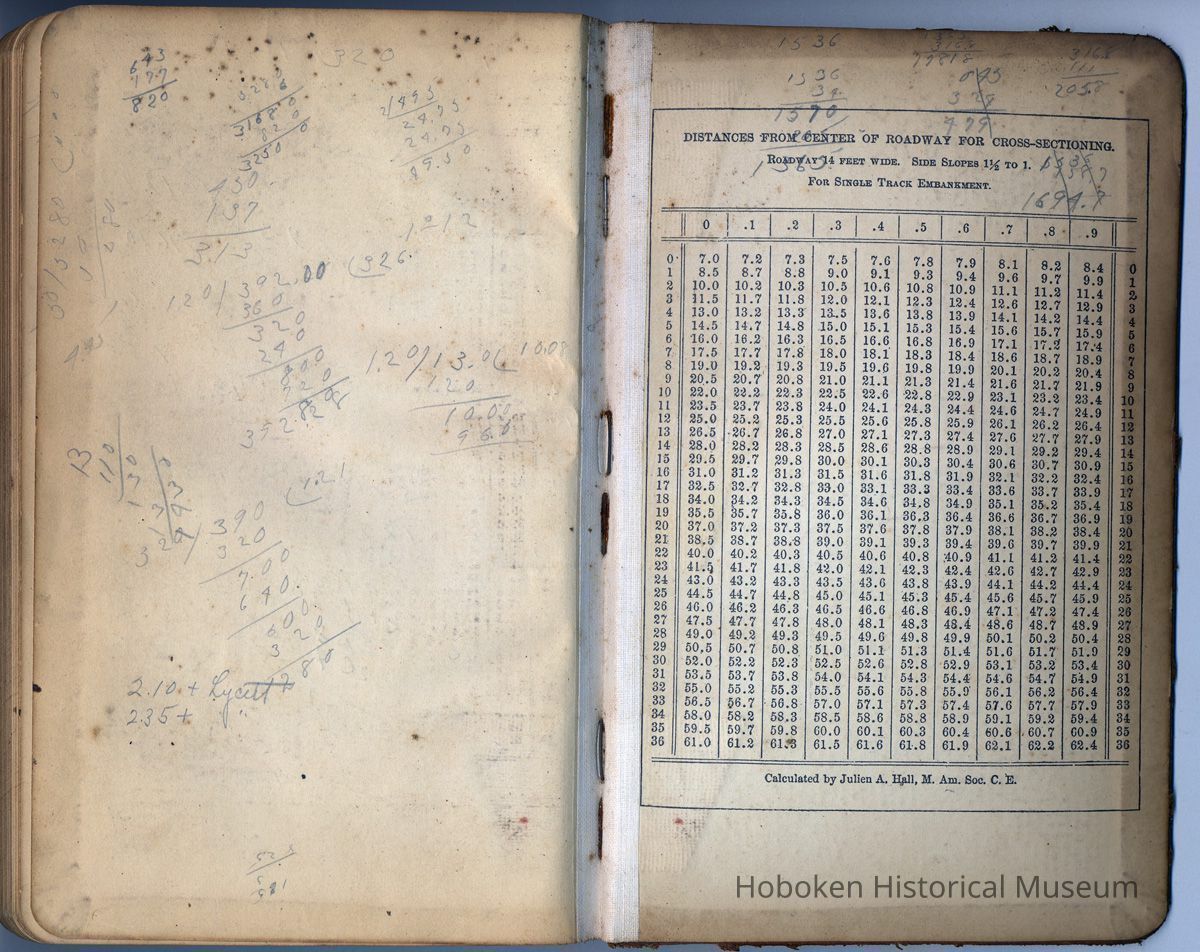 320
643
177
820
3286
31680
820
3250
450
137
313
2/495
24.75
24.75
49.50
1212
120/392.00 (326
360
320
240
800
720
120/13.0( 10.08
120
10.00
9.60
13
110
130
320/390 (1.21
320
700
640
600
320
280
2.10 + Lycett
2.35 + "
1536
1536
34
1570
3168
111
893
1694.7
DISTANCES FROM CENTER OF ROADWAY FOR CROSS-SECTIONING.
ROADWAY 14 FEET WIDE. SIDE SLOPES 1½ TO 1.
FOR SINGLE TRACK EMBANKMENT.
0 .1 .2 .3 .4 .5 .6 .7 .8 .9
0 7.0 7.2 7.3 7.5 7.6 7.8 7.9 8.1 8.2 8.4 0
1 8.5 8.7 8.8 9.0 9.1 9.3 9.4 9.6 9.7 9.9 1
2 10.0 10.2 10.3 10.5 10.6 10.8 10.9 11.1 11.2 11.4 2
3 11.5 11.7 11.8 12.0 12.1 12.3 12.4 12.6 12.7 12.9 3
4 13.0 13.2 13.3 13.5 13.6 13.8 13.9 14.1 14.2 14.4 4
5 14.5 14.7 14.8 15.0 15.1 15.3 15.4 15.6 15.7 15.9 5
6 16.0 16.2 16.3 16.5 16.6 16.8 16.9 17.1 17.2 17.4 6
7 17.5 17.7 17.8 18.0 18.1 18.3 18.4 18.6 18.7 18.9 7
8 19.0 19.2 19.3 19.5 19.6 19.8 19.9 20.1 20.2 20.4 8
9 20.5 20.7 20.8 21.0 21.1 21.3 21.4 21.6 21.7 21.9 9
10 22.0 22.2 22.3 22.5 22.6 22.8 22.9 23.1 23.2 23.4 10
11 23.5 23.7 23.8 24.0 24.1 24.3 24.4 24.6 24.7 24.9 11
12 25.0 25.2 25.3 25.5 25.6 25.8 25.9 26.1 26.2 26.4 12
13 26.5 26.7 26.8 27.0 27.1 27.3 27.4 27.6 27.7 27.9 13
14 28.0 28.2 28.3 28.5 28.6 28.8 28.9 29.1 29.2 29.4 14
15 29.5 29.7 29.8 30.0 30.1 30.3 30.4 30.6 30.7 30.9 15
16 31.0 31.2 31.3 31.5 31.6 31.8 31.9 32.1 32.2 32.4 16
17 32.5 32.7 32.8 33.0 33.1 33.3 33.4 33.6 33.7 33.9 17
18 34.0 34.2 34.3 34.5 34.6 34.8 34.9 35.1 35.2 35.4 18
19 35.5 35.7 35.8 36.0 36.1 36.3 36.4 36.6 36.7 36.9 19
20 37.0 37.2 37.3 37.5 37.6 37.8 37.9 38.1 38.2 38.4 20
21 38.5 38.7 38.8 39.0 39.1 39.3 39.4 39.6 39.7 39.9 21
22 40.0 40.2 40.3 40.5 40.6 40.8 40.9 41.1 41.2 41.4 22
23 41.5 41.7 41.8 42.0 42.1 42.3 42.4 42.6 42.7 42.9 23
24 43.0 43.2 43.3 43.5 43.6 43.8 43.9 44.1 44.2 44.4 24
25 44.5 44.7 44.8 45.0 45.1 45.3 45.4 45.6 45.7 45.9 25
26 46.0 46.2 46.3 46.5 46.6 46.8 46.9 47.1 47.2 47.4 26
27 47.5 47.7 47.8 48.0 48.1 48.3 48.4 48.6 48.7 48.9 27
28 49.0 49.2 49.3 49.5 49.6 49.8 49.9 50.1 50.2 50.4 28
29 50.5 50.7 50.8 51.0 51.1 51.3 51.4 51.6 51.7 51.9 29
30 52.0 52.2 52.3 52.5 52.6 52.8 52.9 53.1 53.2 53.4 30
31 53.5 53.7 53.8 54.0 54.1 54.3 54.4 54.6 54.7 54.9 31
32 55.0 55.2 55.3 55.5 55.6 55.8 55.9 56.1 56.2 56.4 32
33 56.5 56.7 56.8 57.0 57.1 57.3 57.4 57.6 57.7 57.9 33
34 58.0 58.2 58.3 58.5 58.6 58.8 58.9 59.1 59.2 59.4 34
35 59.5 59.7 59.8 60.0 60.1 60.3 60.4 60.6 60.7 60.9 35
36 61.0 61.2 61.3 61.5 61.6 61.8 61.9 62.1 62.2 62.4 36
Calculated by Julien A. Hall, M. Am. Soc. C. E.
Hoboken Historical Museum